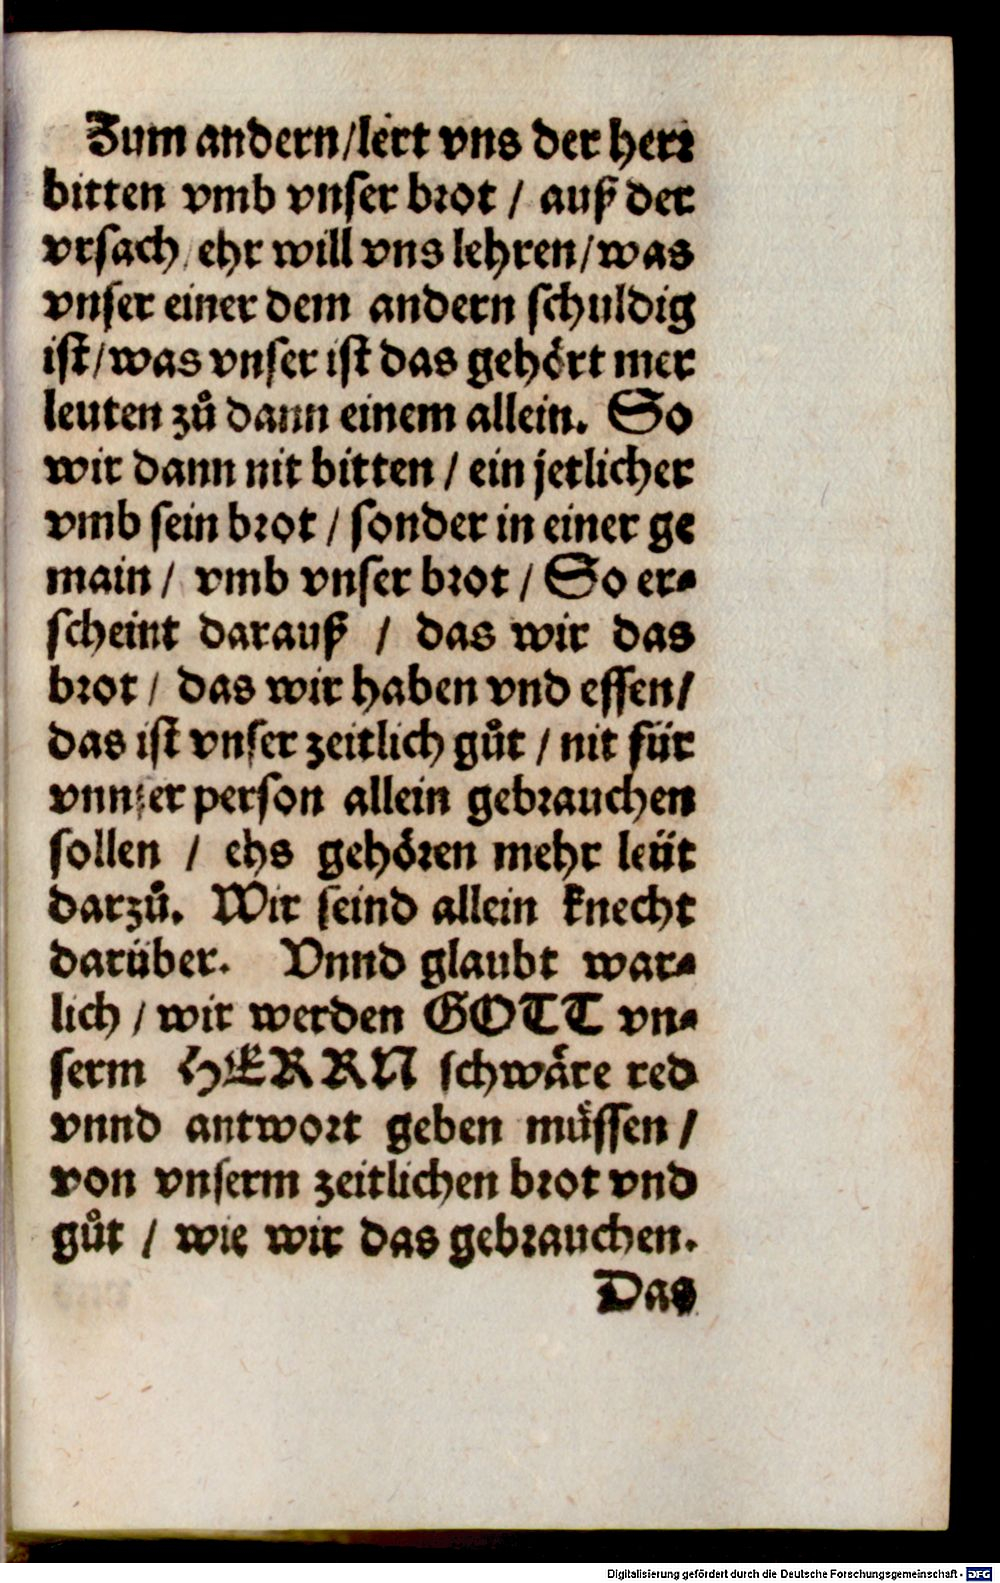 Zum andern/lert vns der herr
bitten vmb vnser brot / auß der
vrsach/ ehr will vns lehren/was
vnser einer dem andern schuldig
ist/was vnser ist das gehört mer
leuten zů dann einem allein. So
wir dann nit bitten / ein jetlicher
vmb sein brot / sonder in einer ge
main / vmb vnser brot / So er-
scheint darauß / das wir das
brot / das wir haben vnd essen/
das ist vnser zeitlich gůt / nit für
vnnser person allein gebrauchen
sollen / ehs gehören mehr leüt
darzů. Wir seind allein knecht
darüber. Vnnd glaubt war-
lich / wir werden GOTT vn-
serm HERRN schwäre red
vnnd antwort geben müssen /
von vnserm zeitlichen brot vnd
gůt / wie wir das gebrauchen.
Das
Digitalisierung gefördert durch die Deutsche Forschungsgemeinschaft - DFG